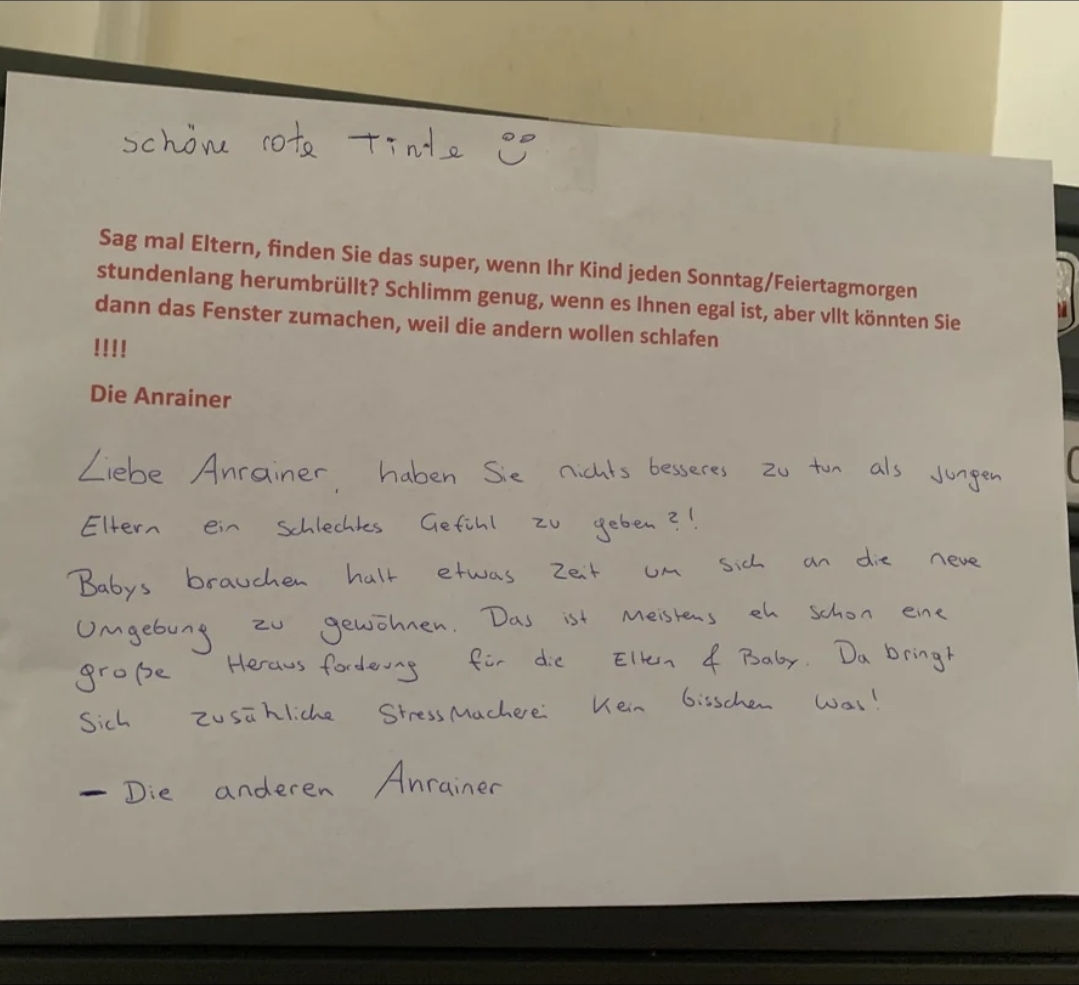 schöne rote Tinte
Sag mal Eltern, finden Sie das super, wenn Ihr Kind jeden Sonntag/Feiertagmorgen
stundenlang herumbrüllt? Schlimm genug, wenn es Ihnen egal ist, aber vllt könnten Sie
dann das Fenster zumachen, weil die andern wollen schlafen
!!!!
Die Anrainer
Liebe Anrainer, haben Sie nichts besseres zu tun als jungen
Eltern ein schlechtes Gefühl zu geben?!
Babys brauchen halt etwas Zeit um sich an die neue
Umgebung zu gewöhnen. Das ist meistens eh schon eine
große Herausforderung für die Eltern & Baby. Da bringt
sich zusätzliche Stressmacherei kein bisschen was!
- Die anderen Anrainer